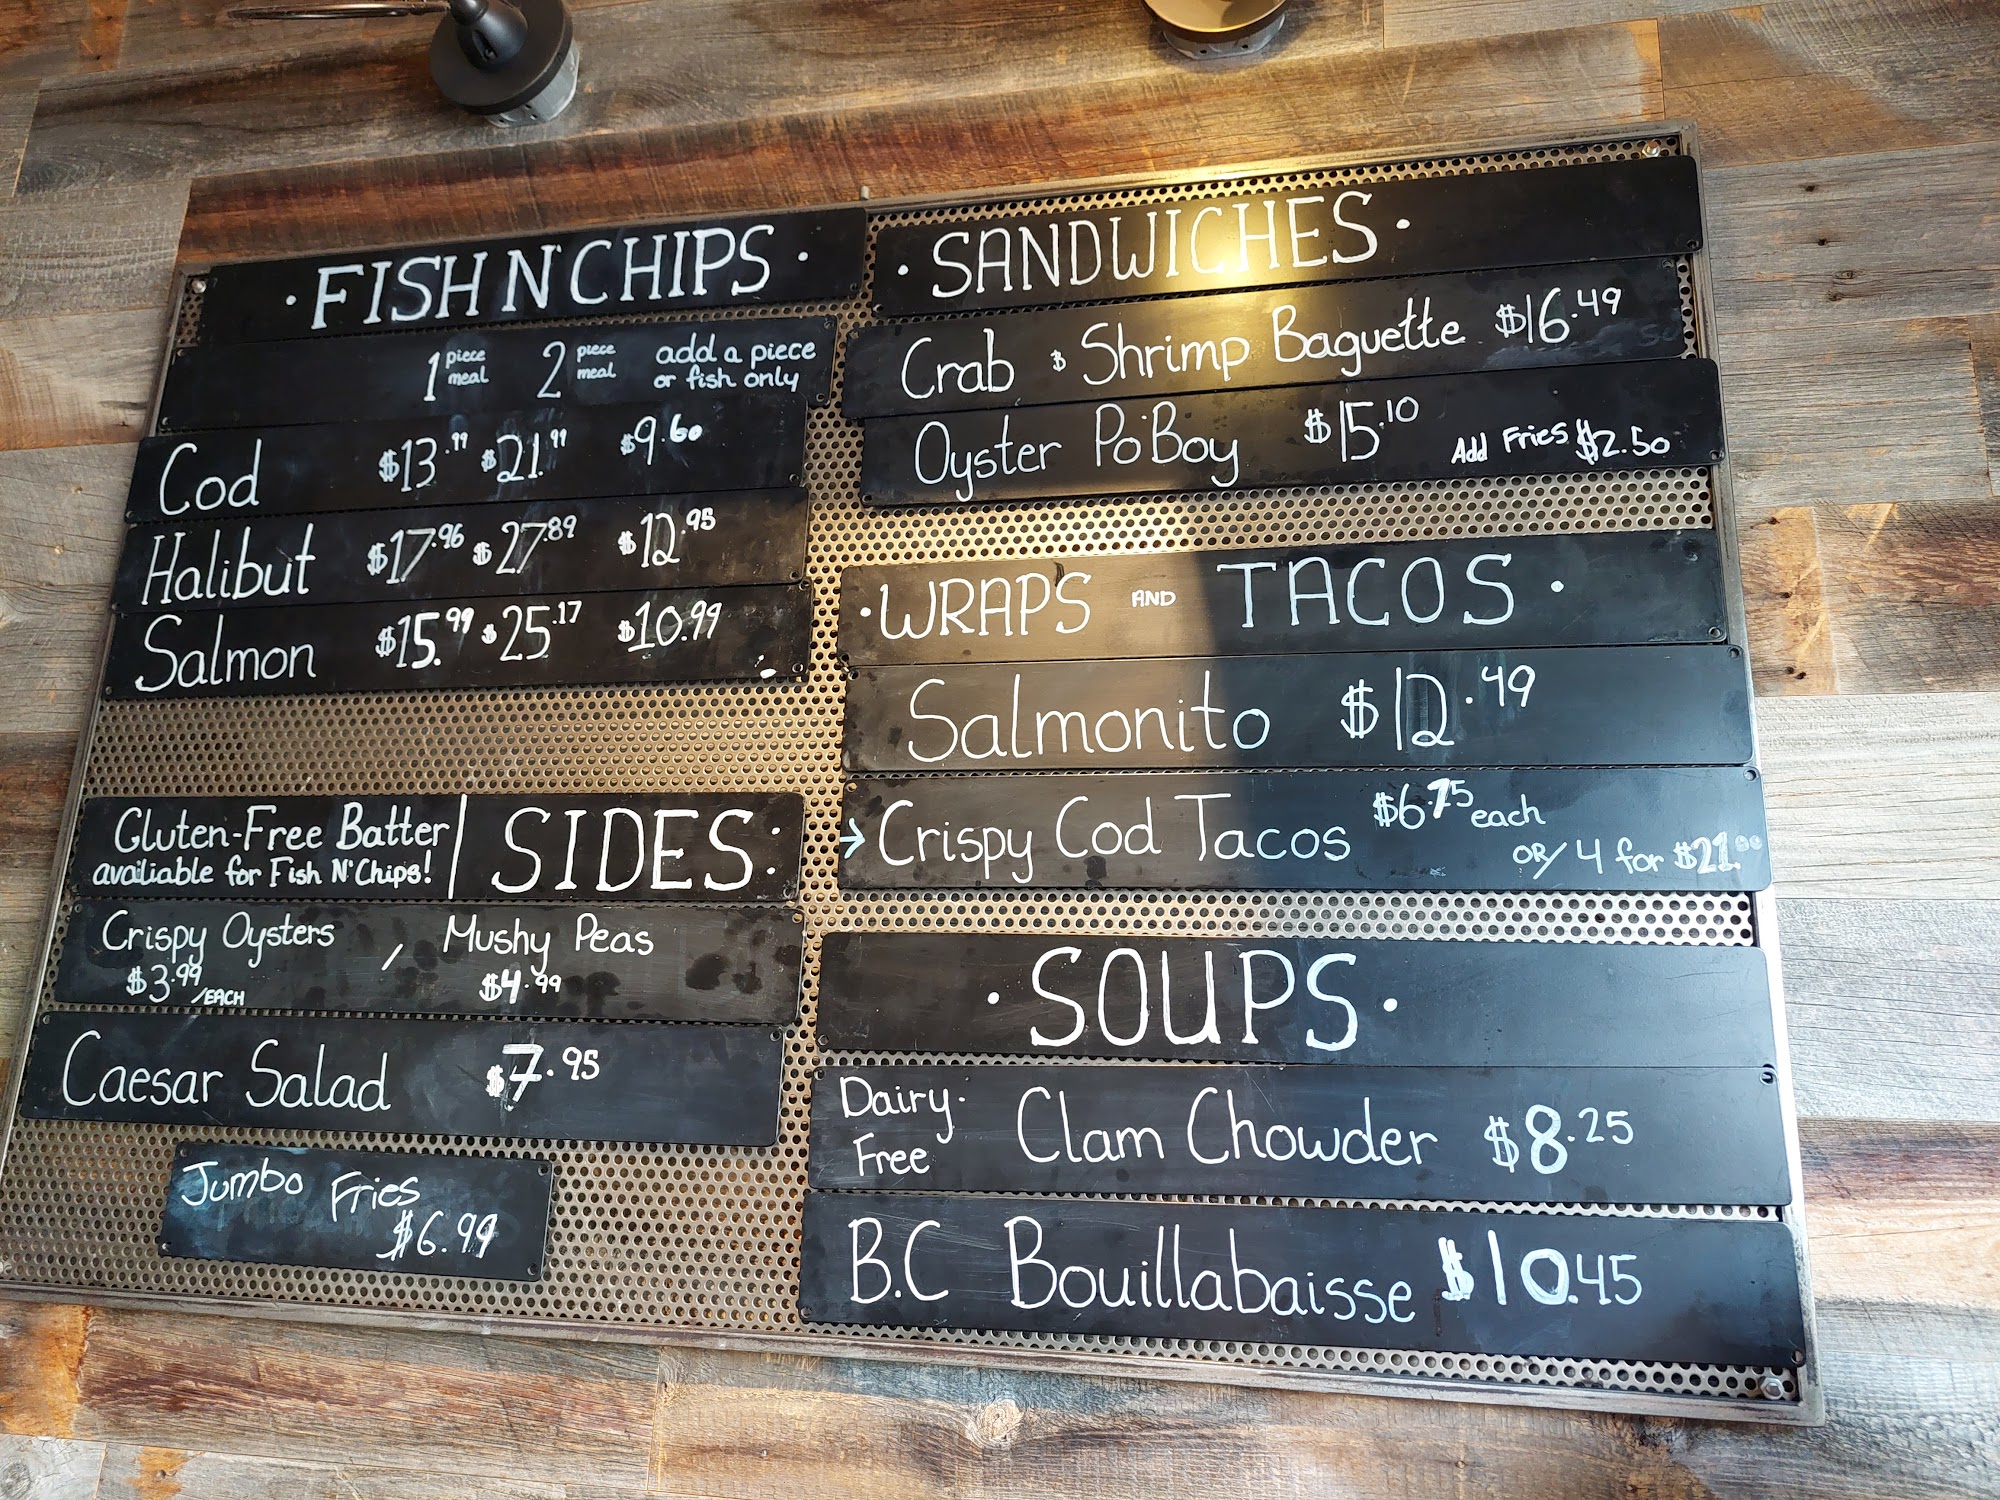 · FISH N' CHIPS ·
1 piece meal 2 piece meal add a piece or fish only
Cod $13.99 $21.99 $9.60
Halibut $17.96 $27.89 $12.95
Salmon $15.99 $25.17 $10.99
Gluten-Free Batter
available for Fish N' Chips!
SIDES:
Crispy Oysters / Mushy Peas
$3.99 /EACH $4.99
Caesar Salad $7.95
Jumbo Fries
$6.99
· SANDWICHES ·
Crab & Shrimp Baguette $16.49
Oyster Po'Boy $15.10 Add Fries $2.50
· WRAPS AND TACOS ·
Salmonito $12.49
→ Crispy Cod Tacos $6.75 each
OR/ 4 for $21.00
· SOUPS ·
Dairy-Free Clam Chowder $8.25
B.C Bouillabaisse $10.45